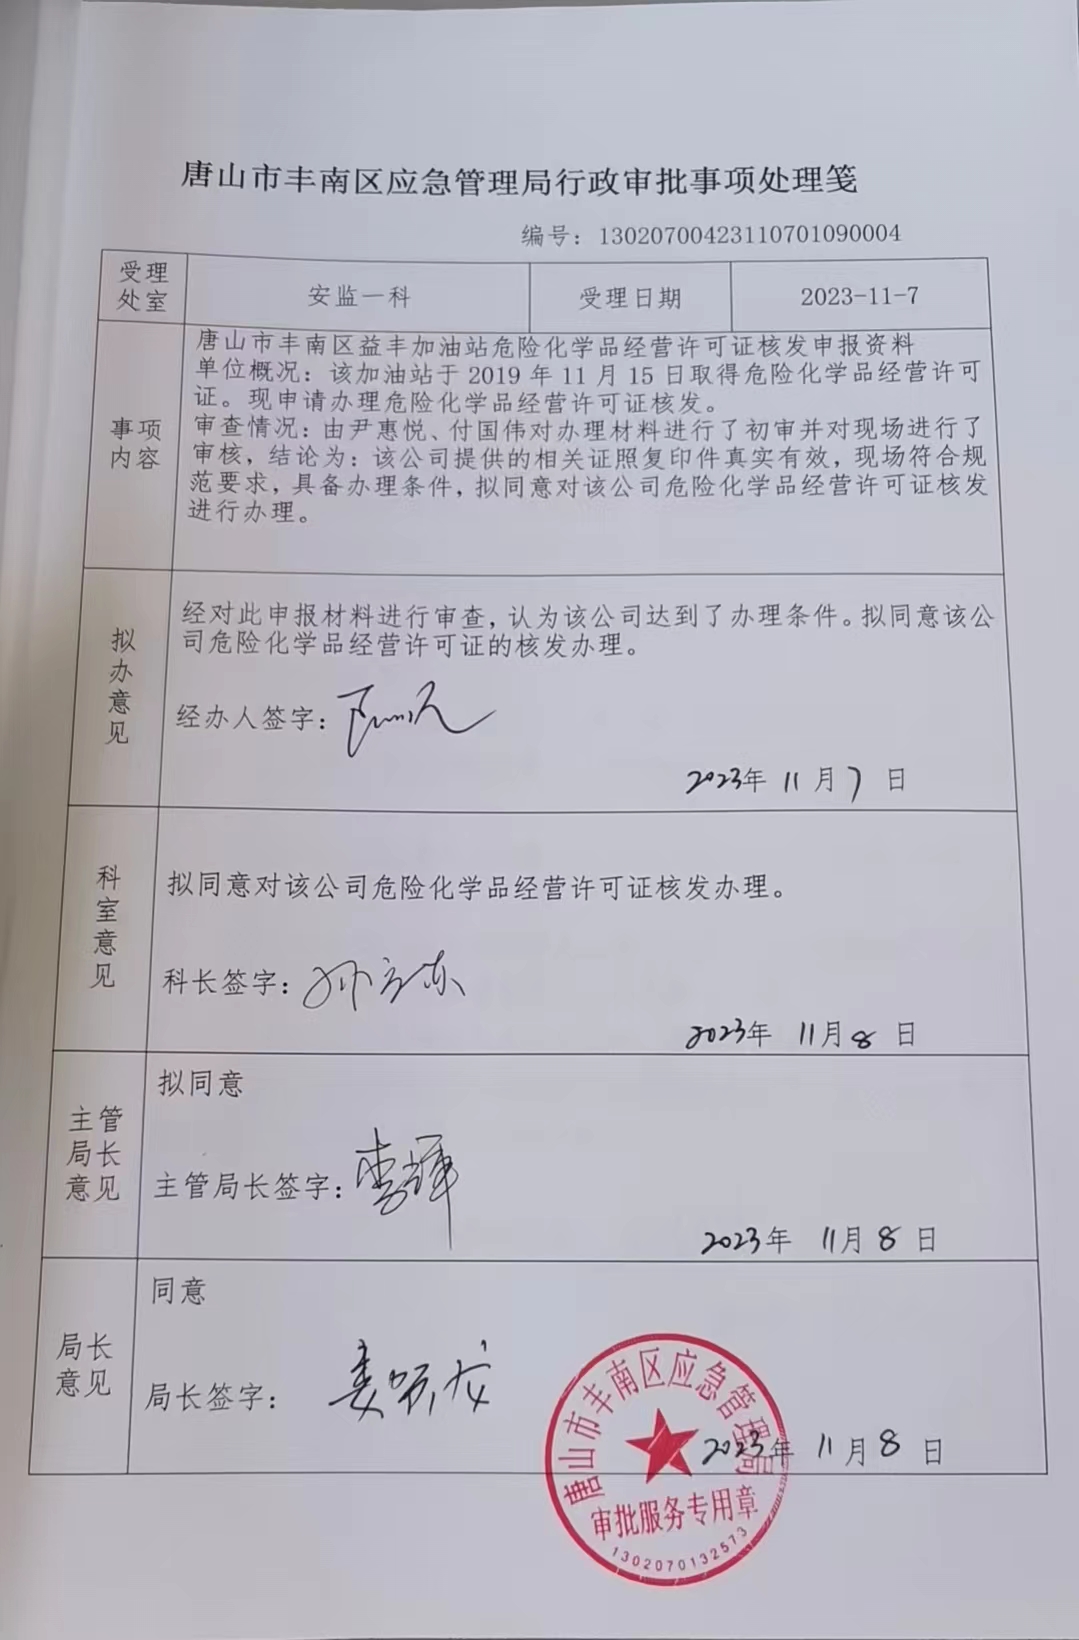 唐山市丰南区应急管理局行政审批事项处理笺
编号：13020700423110701090004
受理处室
安监一科
受理日期
2023-11-7
事项内容
唐山市丰南区益丰加油站危险化学品经营许可证核发申报资料
单位概况：该加油站于 2019 年 11 月 15 日取得危险化学品经营许可
证。现申请办理危险化学品经营许可证核发。
审查情况：由尹惠悦、付国伟对办理材料进行了初审并对现场进行了
审核，结论为：该公司提供的相关证照复印件真实有效，现场符合规
范要求，具备办理条件，拟同意对该公司危险化学品经营许可证核发
进行办理。
拟办意见
经对此申报材料进行审查，认为该公司达到了办理条件。拟同意该公
司危险化学品经营许可证的核发办理。
经办人签字：
2023年 11 月 7 日
科室意见
拟同意对该公司危险化学品经营许可证核发办理。
科长签字：
2023年 11月 8 日
主管局长意见
拟同意
主管局长签字：李辉
2023年 11月 8 日
局长意见
同意
局长签字：
2023年 11月 8 日
唐山市丰南区应急管理局
审批服务专用章
1302070132573